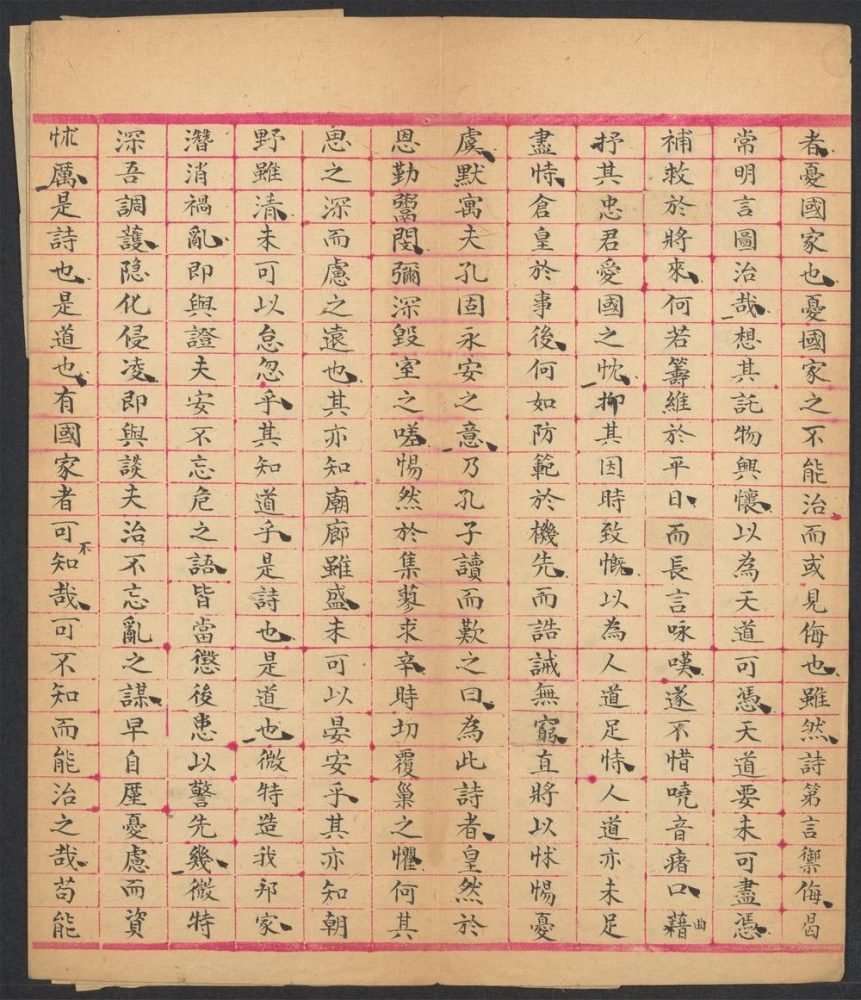 者憂國家也憂國家之不能治而或見侮也雖然詩第言禦侮曷
常明言圖治哉想其託物興懷以為天道可憑天道要未可盡憑
補救於將來何若籌維於平日而長言咏嘆遂不惜嘵音瘏口藉曲
抒其忠君愛國之忱抑其因時致慨以為人道足恃人道亦未足
盡恃倉皇於事後何如防範於機先而誥誡無窮直將以怵惕憂
虞默寓夫孔固永安之意乃孔子讀而歎之曰為此詩者皇然於
恩勤鬻閔彌深毀室之嗟惕然於集蓼求辛時切覆巢之懼何其
思之深而慮之遠也其亦知廟廊雖盛未可以晏安乎其亦知朝
野雖清未可以怠忽乎其知道乎是詩也是道也微特造我邦家
潛消禍亂即與證夫安不忘危之語皆當懲後患以警先幾微特
深吾調護隐化侵凌即與談夫治不忘亂之謀早自厪憂慮而資
怵厲是詩也是道也有國家者可不知哉可不知而能治之哉苟能